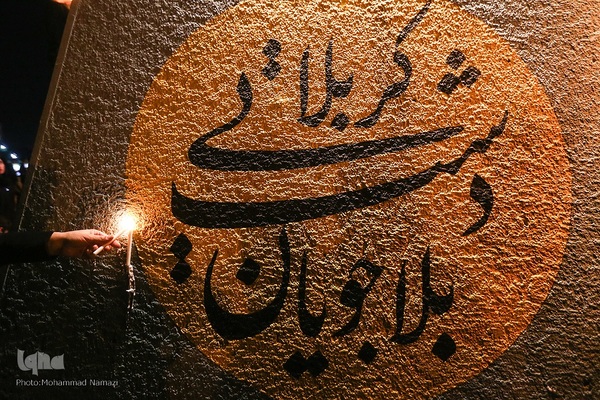 بلاجویان
دشت
کربلایی
iqna
Photo:Mohammad Namazi